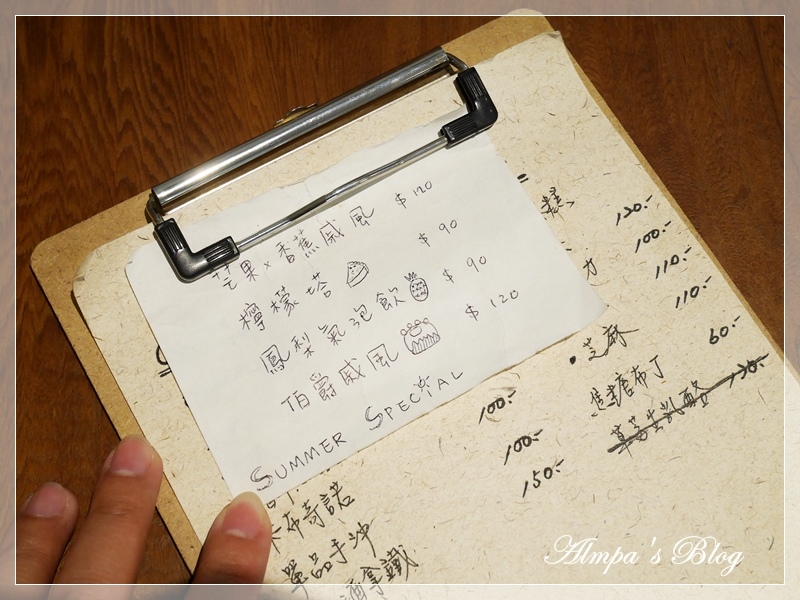 芒果×香蕉戚風 $120
檸檬塔 $90
鳳梨氣泡飲 $90
伯爵戚風 $120
SUMMER SPECIAL
糕 120.-
100.-
110.-
110.-
·芝麻
焦糖布丁 60.-
草莓生乳酪 120.-
100.-
100.-
150.-
卡布奇諾
單品手沖
酒拿鐵
Almpa's Blog